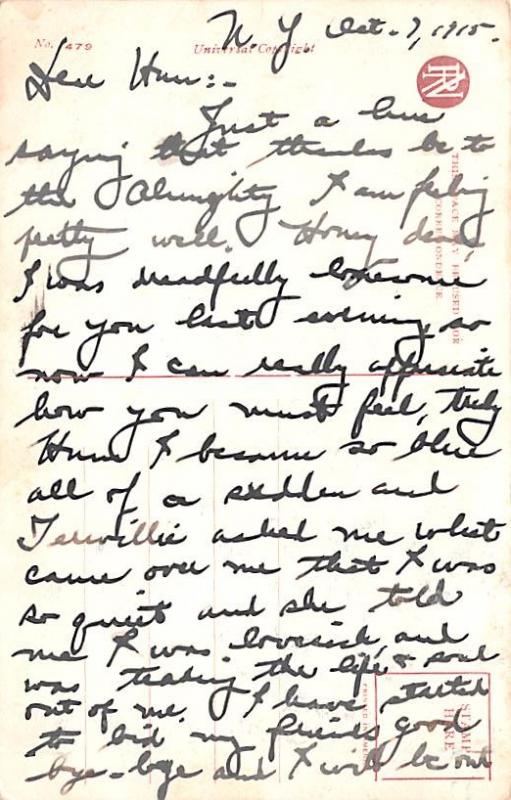 N.Y. Oct. 7, 1915.
No. 479
Universal Copyright
Dear Hun:-
Just a line
saying that thanks be to
the Almighty I am feeling
pretty well. Honey dear,
I was dreadfully lonesome
for you last evening, so
now I can really appreciate
how you must feel, truly
Hun I became so blue
all of a sudden and
asked me what
came over me that I was
so quiet and she told
me I was lovesick, and
was teasing the life & soul
out of me. I have started
to bid my friends good
bye-bye and I will be out
THIS SPACE MAY BE USED FOR
CORRESPONDENCE
STAMP
HERE